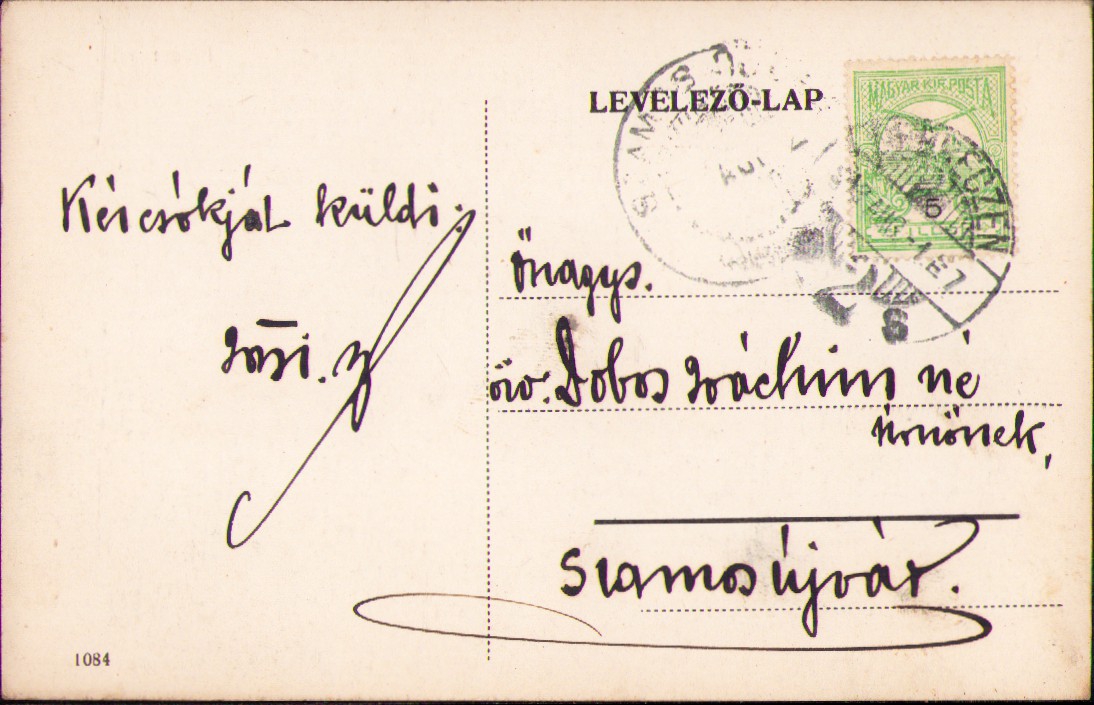 LEVELEZŐ-LAP
MAGYAR KIR. POSTA
Kézcsókját küldi.
Őnagys.
özv. Dobos Joáchim né
Úrnőnek,
Szamosújvár.
1084